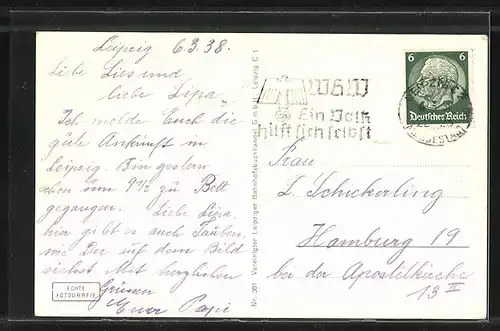 Leipzig 6.3.38.
Liebe Lies und
liebe Lipa,
Ich melde Euch die
gute Ankunft in
Leipzig. Bin gestern
schon um 9½ zu Bett
gegangen. Liebe Lipa,
hier gibt es auch Tauben,
wie Du auf dem Bild
siehst. Mit herzlichen
Grüssen
Euer Papi
ECHTE
FOTOGRAFIE
Nr. 301 Vereinigter Leipziger Bahnhofsbuchhandel G.m.b.H. Leipzig C 1
WHW
Ein Volk
hilft sich selbst
6 6
Deutsches Reich
Frau
L. Schickerling
Hamburg 19
bei der Apostelkirche
13 II